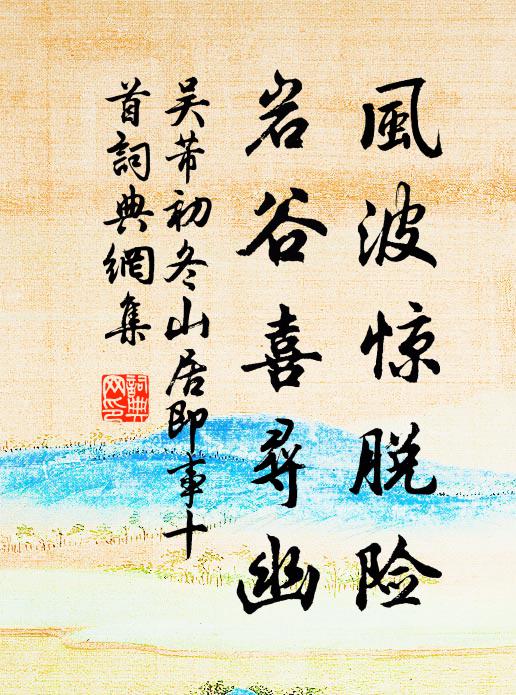 風波惊脱险
岩谷喜尋幽
吴芾初冬山居即事十
首詞典網集
詞典
网印